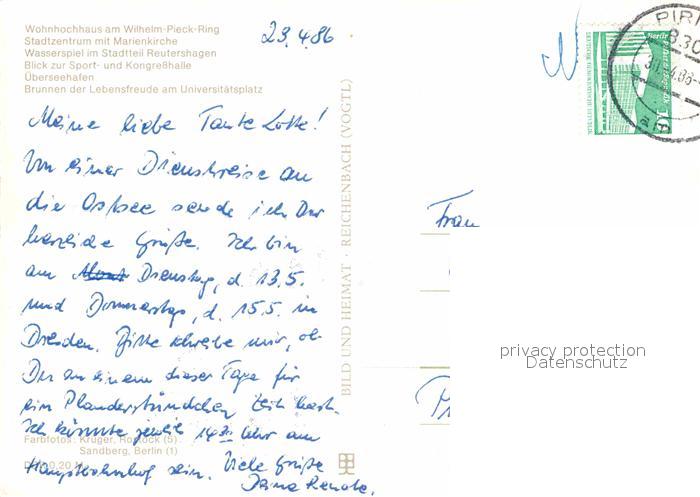 Wohnhochhaus am Wilhelm-Pieck-Ring
Stadtzentrum mit Marienkirche
Wasserspiel im Stadtteil Reutershagen
Blick zur Sport- und Kongreßhalle
Überseehafen
Brunnen der Lebensfreude am Universitätsplatz
23.4.86
Meine liebe Tante Lotte!
Von einer Dienstreise an
die Ostsee sende ich Dir
herzliche Grüße. Ich bin
am Dienstag, d. 13.5.
und Donnerstag, d. 15.5. in
Dresden. Bitte schreibe mir, ob
Du an einem dieser Tage für
ein Plauderstündchen Zeit hast.
Ich könnte jeweils 14 30 Uhr am
Hauptbahnhof sein. Viele Grüße
Deine Renate.
Farbfotos: Krüger, Rostock (5)
Sandberg, Berlin (1)
BILD UND HEIMAT · REICHENBACH (VOGTL)
PIR
830
Berlin
10
Frau
privacy protection
Datenschutz